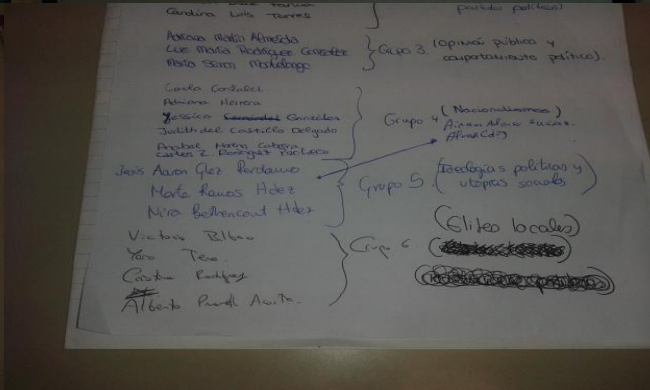 Carolina Luis Torres
partidos políticos)
Adriana María Almeida
Luz María Rodríguez González
María Simón
Grupo 3 (Opinión pública y
comportamiento político).
Carla González
Adriana Herrera
Yessica González
Judith del Castillo Delgado
Anabel
Carlos Z. Rodríguez Pacheco
Grupo 4
(Nacionalismos)
Jesús Aaron Glez Perdomo
Marta Ramos Hdez
Nira Bethencourt Hdez
Grupo 5. (Ideologías políticas y
utopías sociales)
Victoria Bilbao
Yara
Cristina Rodríguez
Alberto
Grupo 6
(Elites locales)